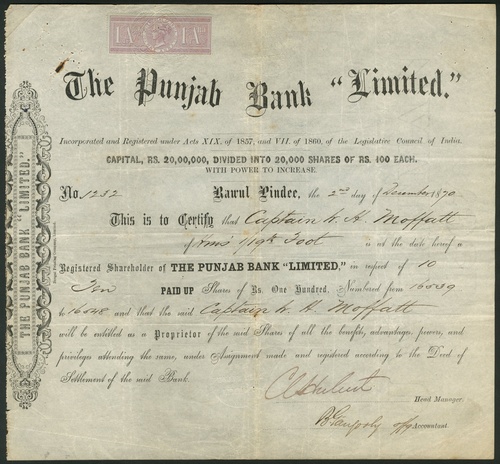 1 AN 1 AN
The Punjab Bank "Limited."
Incorporated and Registered under Acts XIX. of 1857; and VII. of 1860, of the Legislative Council of India.
CAPITAL, RS. 20,00,000, DIVIDED INTO 20,000 SHARES OF RS. 100 EACH.
WITH POWER TO INCREASE
No. 1232 Rawul Pindee, the 2nd day of December 1870
This is to Certify that Captain W. H. Moffatt
of Hms 1/19th Foot is at the date hereof a
Registered Shareholder of THE PUNJAB BANK "LIMITED," in respect of 10
Ten PAID UP Shares of Rs. One Hundred, Numbered from 16039
to 16048 and that the said Captain W. H. Moffatt
will be entitled as a Proprietor of the said Shares of all the benefits, advantage, powers, and
privileges attending the same, under Assignment made and registered according to the Deed of
Settlement of the said Bank.
Head Manager.
Accountant.
THE PUNJAB BANK "LIMITED."